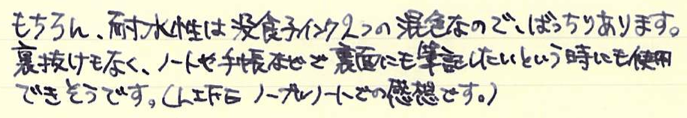 もちろん、耐水性は没食子インク2つの混色なのでばっちりあります。
裏抜けもなく、ノートや手帳などで裏面にも筆記したいという時にも使用
できそうです。(LIFE ノーブルノートでの感想です。)